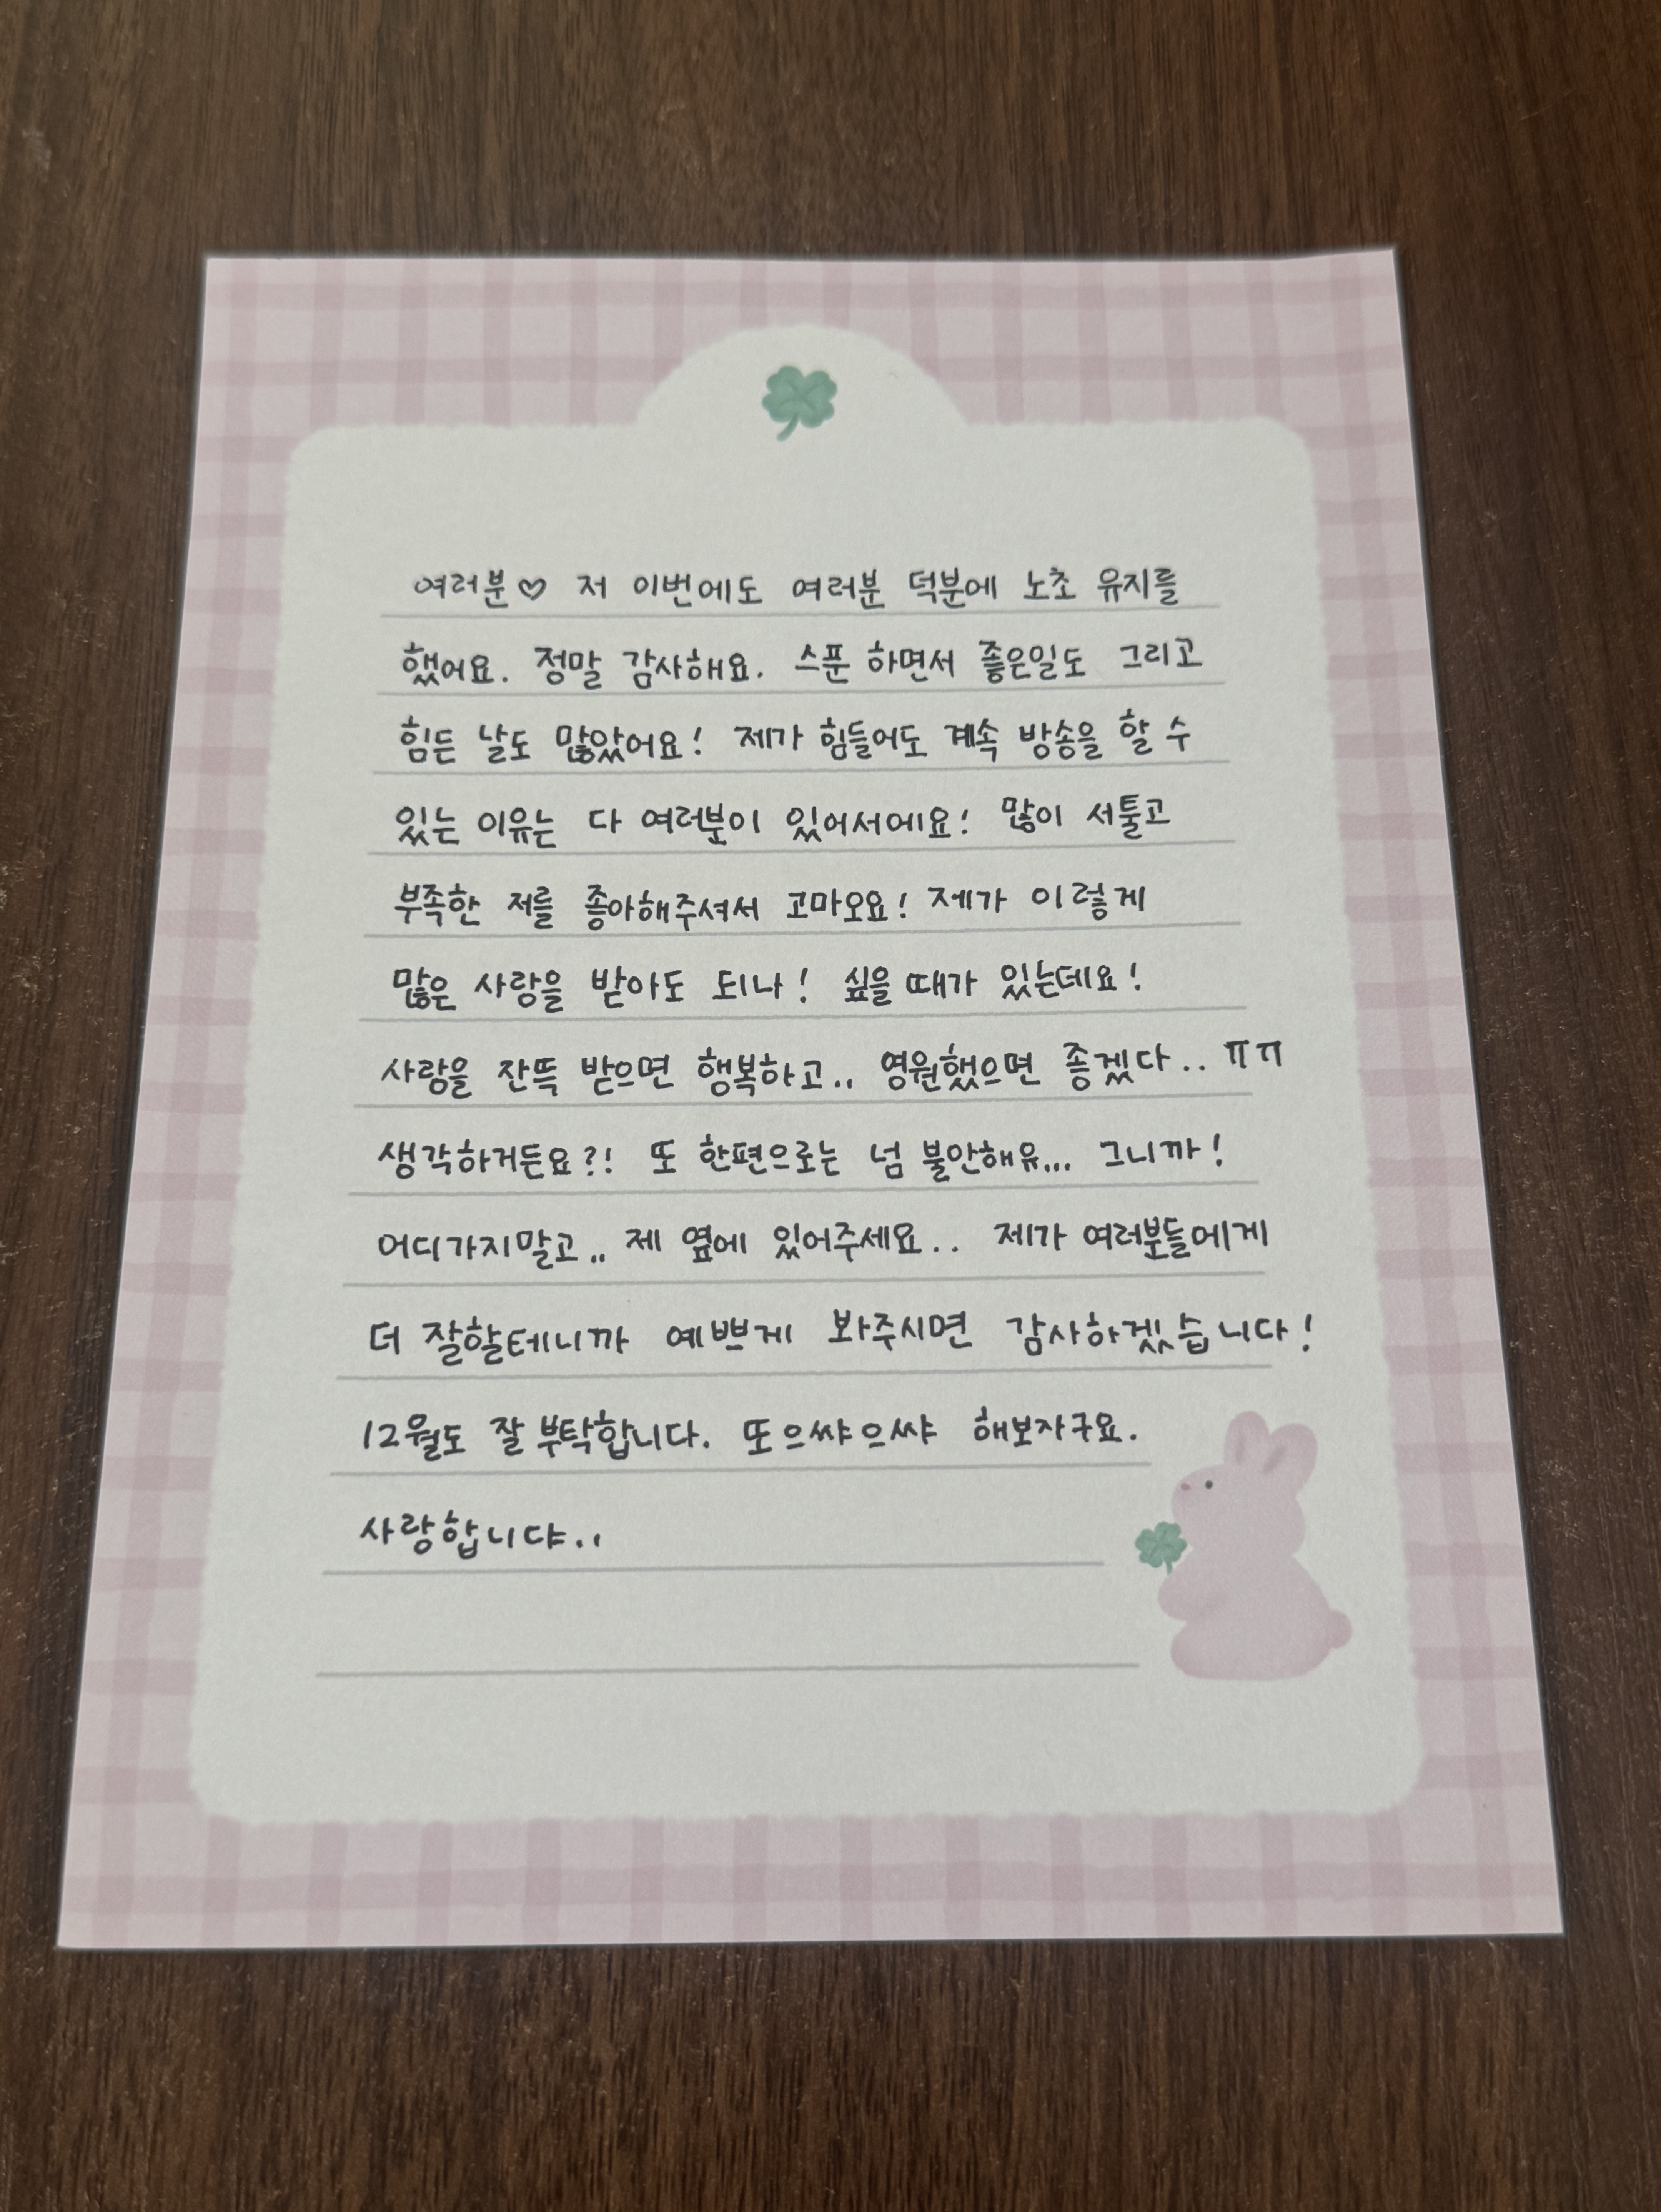 여러분♡ 저 이번에도 여러분 덕분에 노초 유지를
했어요. 정말 감사해요. 스푼 하면서 좋은일도 그리고
힘든 날도 많았어요! 제가 힘들어도 계속 방송을 할 수
있는 이유는 다 여러분이 있어서에요! 많이 서툴고
부족한 저를 좋아해주셔서 고마오요! 제가 이렇게
많은 사랑을 받아도 되나! 싶을 때가 있는데요!
사랑을 잔뜩 받으면 행복하고.. 영원했으면 좋겠다.. ㅠㅠ
생각하거든요?! 또 한편으로는 넘 불안해유... 그니까!
어디가지말고.. 제 옆에 있어주세요.. 제가 여러분들에게
더 잘할테니까 예쁘게 봐주시면 감사하겠습니다!
12월도 잘 부탁합니다. 또 으쌰으쌰 해보자구요.
사랑합니댜..